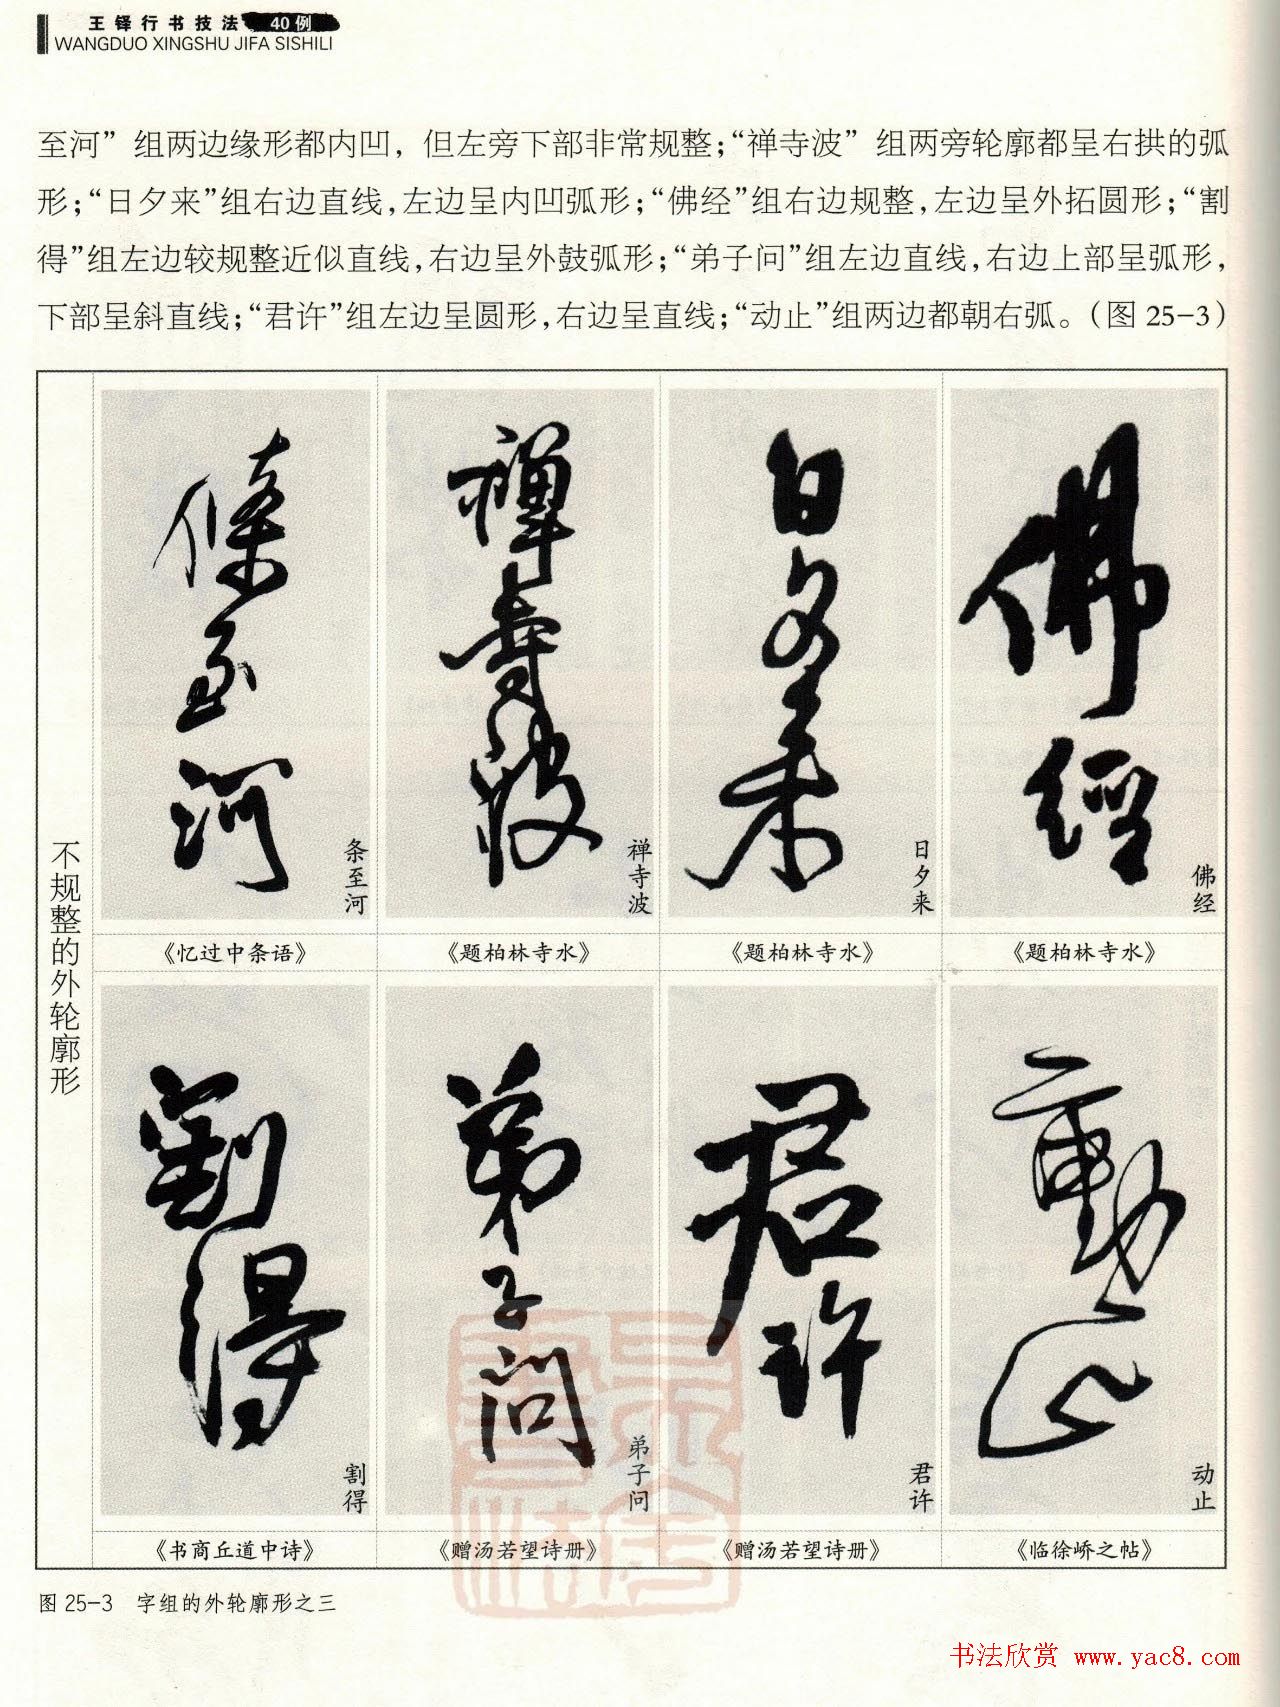 王铎行书技法 40例
WANGDUO XINGSHU JIFA SISHILI
至河”组两边缘形都内凹，但左旁下部非常规整；“禅寺波”组两旁轮廓都呈右拱的弧
形；“日夕来”组右边直线，左边呈内凹弧形；“佛经”组右边规整，左边呈外拓圆形；“割
得”组左边较规整近似直线，右边呈外鼓弧形；“弟子问”组左边直线，右边上部呈弧形，
下部呈斜直线；“君许”组左边呈圆形，右边呈直线；“动止”组两边都朝右弧。（图 25-3）
不规整的外轮廓形
條至河
条至河
禪寺波
禅寺波
日夕来
日夕来
佛經
佛经
《忆过中条语》
《题柏林寺水》
《题柏林寺水》
《题柏林寺水》
割得
割得
弟子问
弟子问
君許
君许
動止
动止
《书商丘道中诗》
《赠汤若望诗册》
《赠汤若望诗册》
《临徐峤之帖》
图 25-3 字组的外轮廓形之三
书法欣赏 www.yac8.com